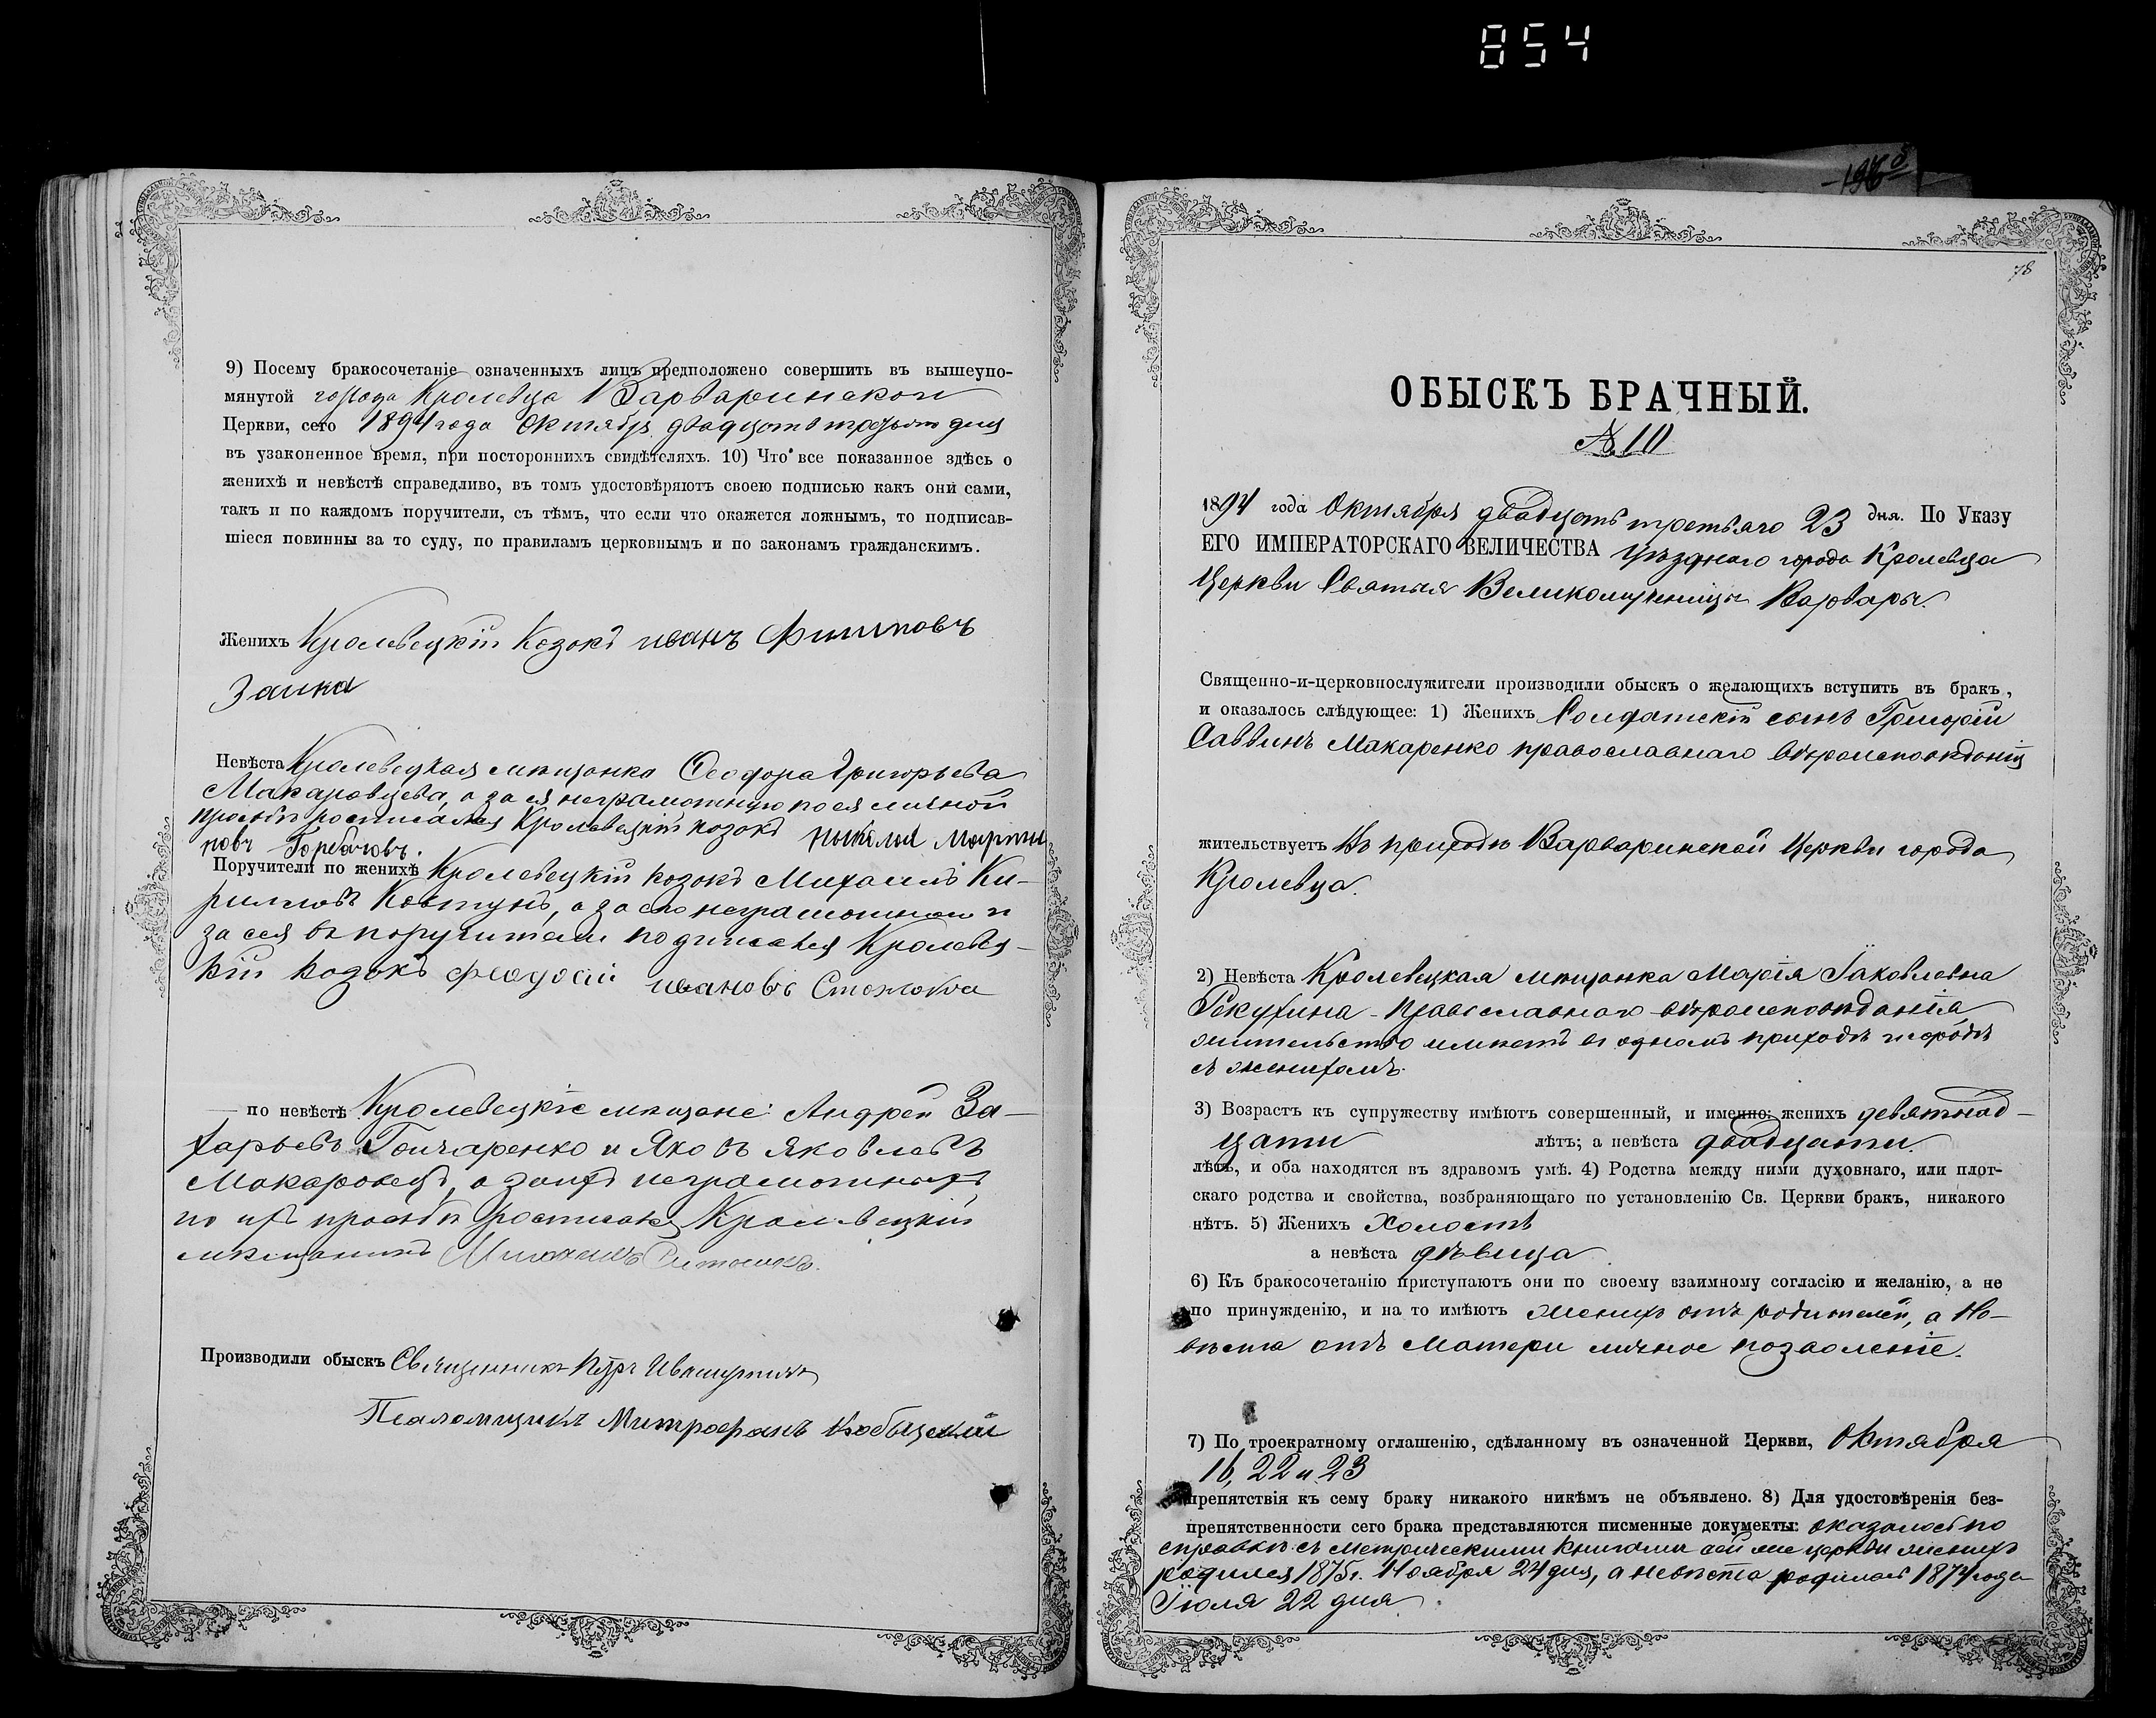 854
-196
9) Посему бракосочетаніе означенныхъ лицъ предположено совершить въ вышеупо-
мянутой города Кролевца Варваринской
Церкви, сего 1894 года Октября двадцать третьяго дня
въ узаконенное время, при постороннихъ свидѣтеляхъ. 10) Что все показанное здѣсь о
женихѣ и невѣстѣ справедливо, въ томъ удостовѣряютъ своею подписью какъ они сами,
такъ и по каждомъ поручители, съ тѣмъ, что если что окажется ложнымъ, то подписав-
шіеся повинны за то суду, по правиламъ церковнымъ и по законамъ гражданскимъ.
Женихъ Кролевецкій Козокъ иванъ Филиповъ
Заика
Невѣста Кролевецкая мѣщанка Ѳеодора Григорьева
Макаровцева, а за ея неграмотную по ея личной
просьбѣ росписался Кролевецкій козокъ Николай Марти
новъ Горбачовъ.
Поручители по женихѣ Кролевецкій козокъ Михаилъ Ки-
риловъ Ковтунъ, а за его неграмотнаго и
за себя въ поручители подписался Кролевец-
кій козокъ феодосій ивановъ
по невѣстѣ Кролевецкіе мѣщане: Андрей За-
харьевъ Гончаренко и Яковъ Яковлевъ
Макаровецъ, а за ихъ неграмотныхъ
по ихъ просьбѣ росписался Кролевецкій
мѣщанинъ Михаилъ
Производили обыскъ Священникъ Петръ
Псаломщикъ Митрофанъ Кобыцскій
78
ОБЫСКЪ БРАЧНЫЙ.
№ 10
1894 года Октября двадцать третьяго 23 дня. По Указу
ЕГО ИМПЕРАТОРСКАГО ВЕЛИЧЕСТВА уѣзднаго города Кролевца
Церкви Святыя Великомученицы Варвары.
Священно-и-церковнослужители производили обыскъ о желающихъ вступить въ бракъ,
и оказалось слѣдующее: 1) Женихъ Солдатскій сынъ Григорій
Саввинъ Макаренко православнаго вѣроисповѣданія
жительствуетъ въ приходѣ Варваринской Церкви города
Кролевца.
2) Невѣста Кролевецкая мѣщанка Марія Іаковлевна
Православнаго вѣроисповѣданія
жительство имѣетъ въ одномъ приходѣ и городѣ
съ женихомъ.
3) Возрастъ къ супружеству имѣютъ совершенный, и именно: женихъ девятнад-
цати лѣтъ; а невѣста двадцати
лѣтъ, и оба находятся въ здравомъ умѣ. 4) Родства между ними духовнаго, или плот-
скаго родства и свойства, возбраняющаго по установленію Св. Церкви бракъ, никакого
нѣтъ. 5) Женихъ Холостъ
а невѣста дѣвица
6) Къ бракосочетанію приступаютъ они по своему взаимному согласію и желанію, а не
по принужденію, и на то имѣютъ Женихъ отъ родителей, а Не-
вѣста отъ Матери личное позволеніе.
7) По троекратному оглашенію, сдѣланному въ означенной Церкви, Октября
16, 22 и 23
препятствія къ сему браку никакого никѣмъ не объявлено. 8) Для удостовѣренія без-
препятственности сего брака представляются писменные документы: оказалось по
справкѣ съ метрическими книгами сей же церкви женихъ
родился 1875 г. Ноября 24 дня, а невѣста родилась 1874 года
Іюля 22 дня.